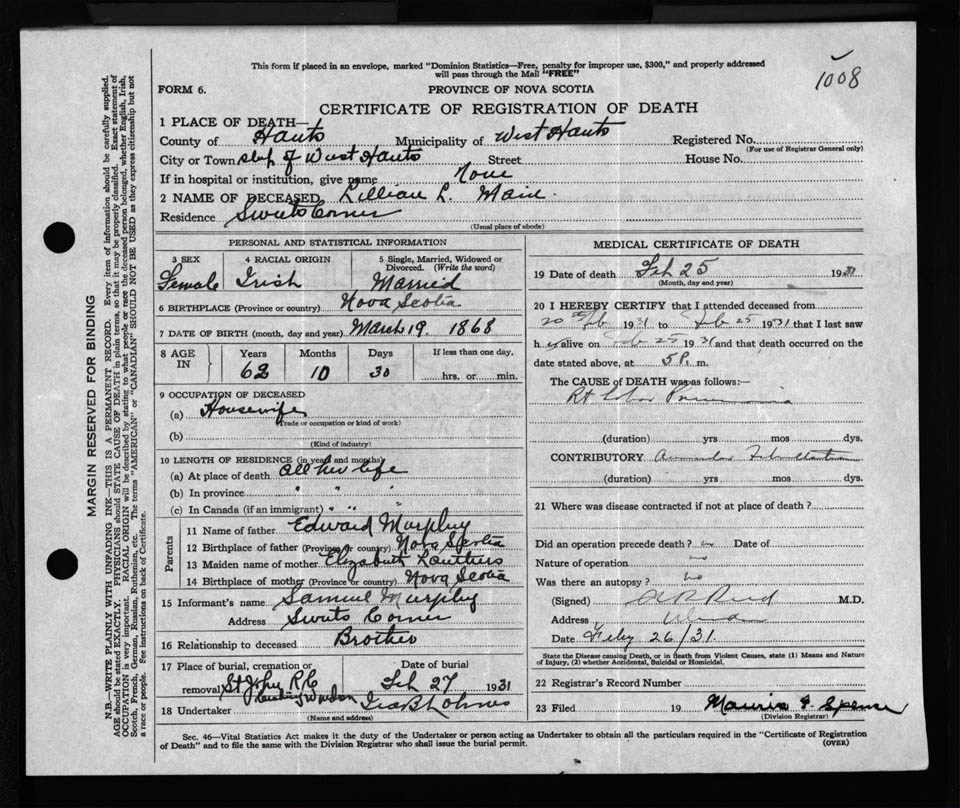 1008
This form if placed in an envelope, marked "Dominion Statistics—Free, penalty for improper use, $300," and properly addressed
will pass through the Mail "FREE"
FORM 6.
PROVINCE OF NOVA SCOTIA
CERTIFICATE OF REGISTRATION OF DEATH
1 PLACE OF DEATH—
County of Hants Municipality of West Hants Registered No.
(For use of Registrar General only)
City or Town of West Hants Street House No.
If in hospital or institution, give name None
2 NAME OF DECEASED Lillian L.
Residence Sweets Corner
(Usual place of abode)
PERSONAL AND STATISTICAL INFORMATION
3 SEX 4 RACIAL ORIGIN 5 Single, Married, Widowed or Divorced. (Write the word)
Female Irish Married
6 BIRTHPLACE (Province or country) Nova Scotia
7 DATE OF BIRTH (month, day and year) March 19. 1868
8 AGE IN Years Months Days If less than one day,
62 10 30 hrs. or min.
9 OCCUPATION OF DECEASED
(a) Housewife
(Trade or occupation or kind of work)
(b)
(Kind of industry)
10 LENGTH OF RESIDENCE (in years and months)
(a) At place of death all her life
(b) In province " " "
(c) In Canada (if an immigrant) " " "
Parents
11 Name of father Edward Murphy
12 Birthplace of father (Province or country) Nova Scotia
13 Maiden name of mother Elizabeth
14 Birthplace of mother (Province or country) Nova Scotia
15 Informant's name Samuel Murphy
Address Sweets Corner
16 Relationship to deceased Brother
17 Place of burial, cremation or removal St John R C Windsor
Date of burial Feb 27 1931
18 Undertaker
(Name and address)
MEDICAL CERTIFICATE OF DEATH
19 Date of death Feb 25 1931
(Month, day and year)
20 I HEREBY CERTIFY that I attended deceased from
20 Feb 1931 to Feb 25 1931 that I last saw
her alive on Feb 25 1931 and that death occurred on the
date stated above, at 5 P. m.
The CAUSE OF DEATH was as follows:—
Rt Lobar Pneumonia
(duration) yrs mos dys.
CONTRIBUTORY Auricular Fibrillation
(duration) yrs mos dys.
21 Where was disease contracted if not at place of death?
Did an operation precede death? no Date of
Nature of operation
Was there an autopsy? no
(Signed) Reid M.D.
Address Windsor
Date Feby 26/31.
State the Disease causing Death, or in death from Violent Causes, state (1) Means and Nature
of Injury, (2) whether Accidental, Suicidal or Homicidal.
22 Registrar's Record Number
23 Filed 19
(Division Registrar)
Sec. 46—Vital Statistics Act makes it the duty of the Undertaker or person acting as Undertaker to obtain all the particulars required in the "Certificate of Registration
of Death" and to file the same with the Division Registrar who shall issue the burial permit.
(OVER)
MARGIN RESERVED FOR BINDING
N.B.—WRITE PLAINLY WITH UNFADING INK—THIS IS A PERMANENT RECORD. Every item of information should be carefully supplied.
AGE should be stated EXACTLY. PHYSICIANS should STATE CAUSE OF DEATH in plain terms, so that it may be properly classified. Exact statement of
OCCUPATION is very important. RACIAL ORIGIN will be described by stating to what people or race the deceased person belonged, whether English, Irish,
Scotch, French, German, Russian, Ruthenian, etc. The terms "AMERICAN" or "CANADIAN" SHOULD NOT BE USED as they express citizenship but not
a race or people. See instructions on back of Certificate.